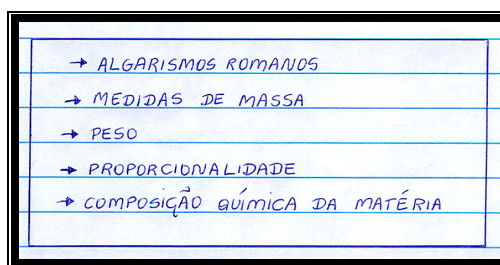 → ALGARISMOS ROMANOS
→ MEDIDAS DE MASSA
→ PESO
→ PROPORCIONALIDADE
→ COMPOSIÇÃO QUÍMICA DA MATÉRIA